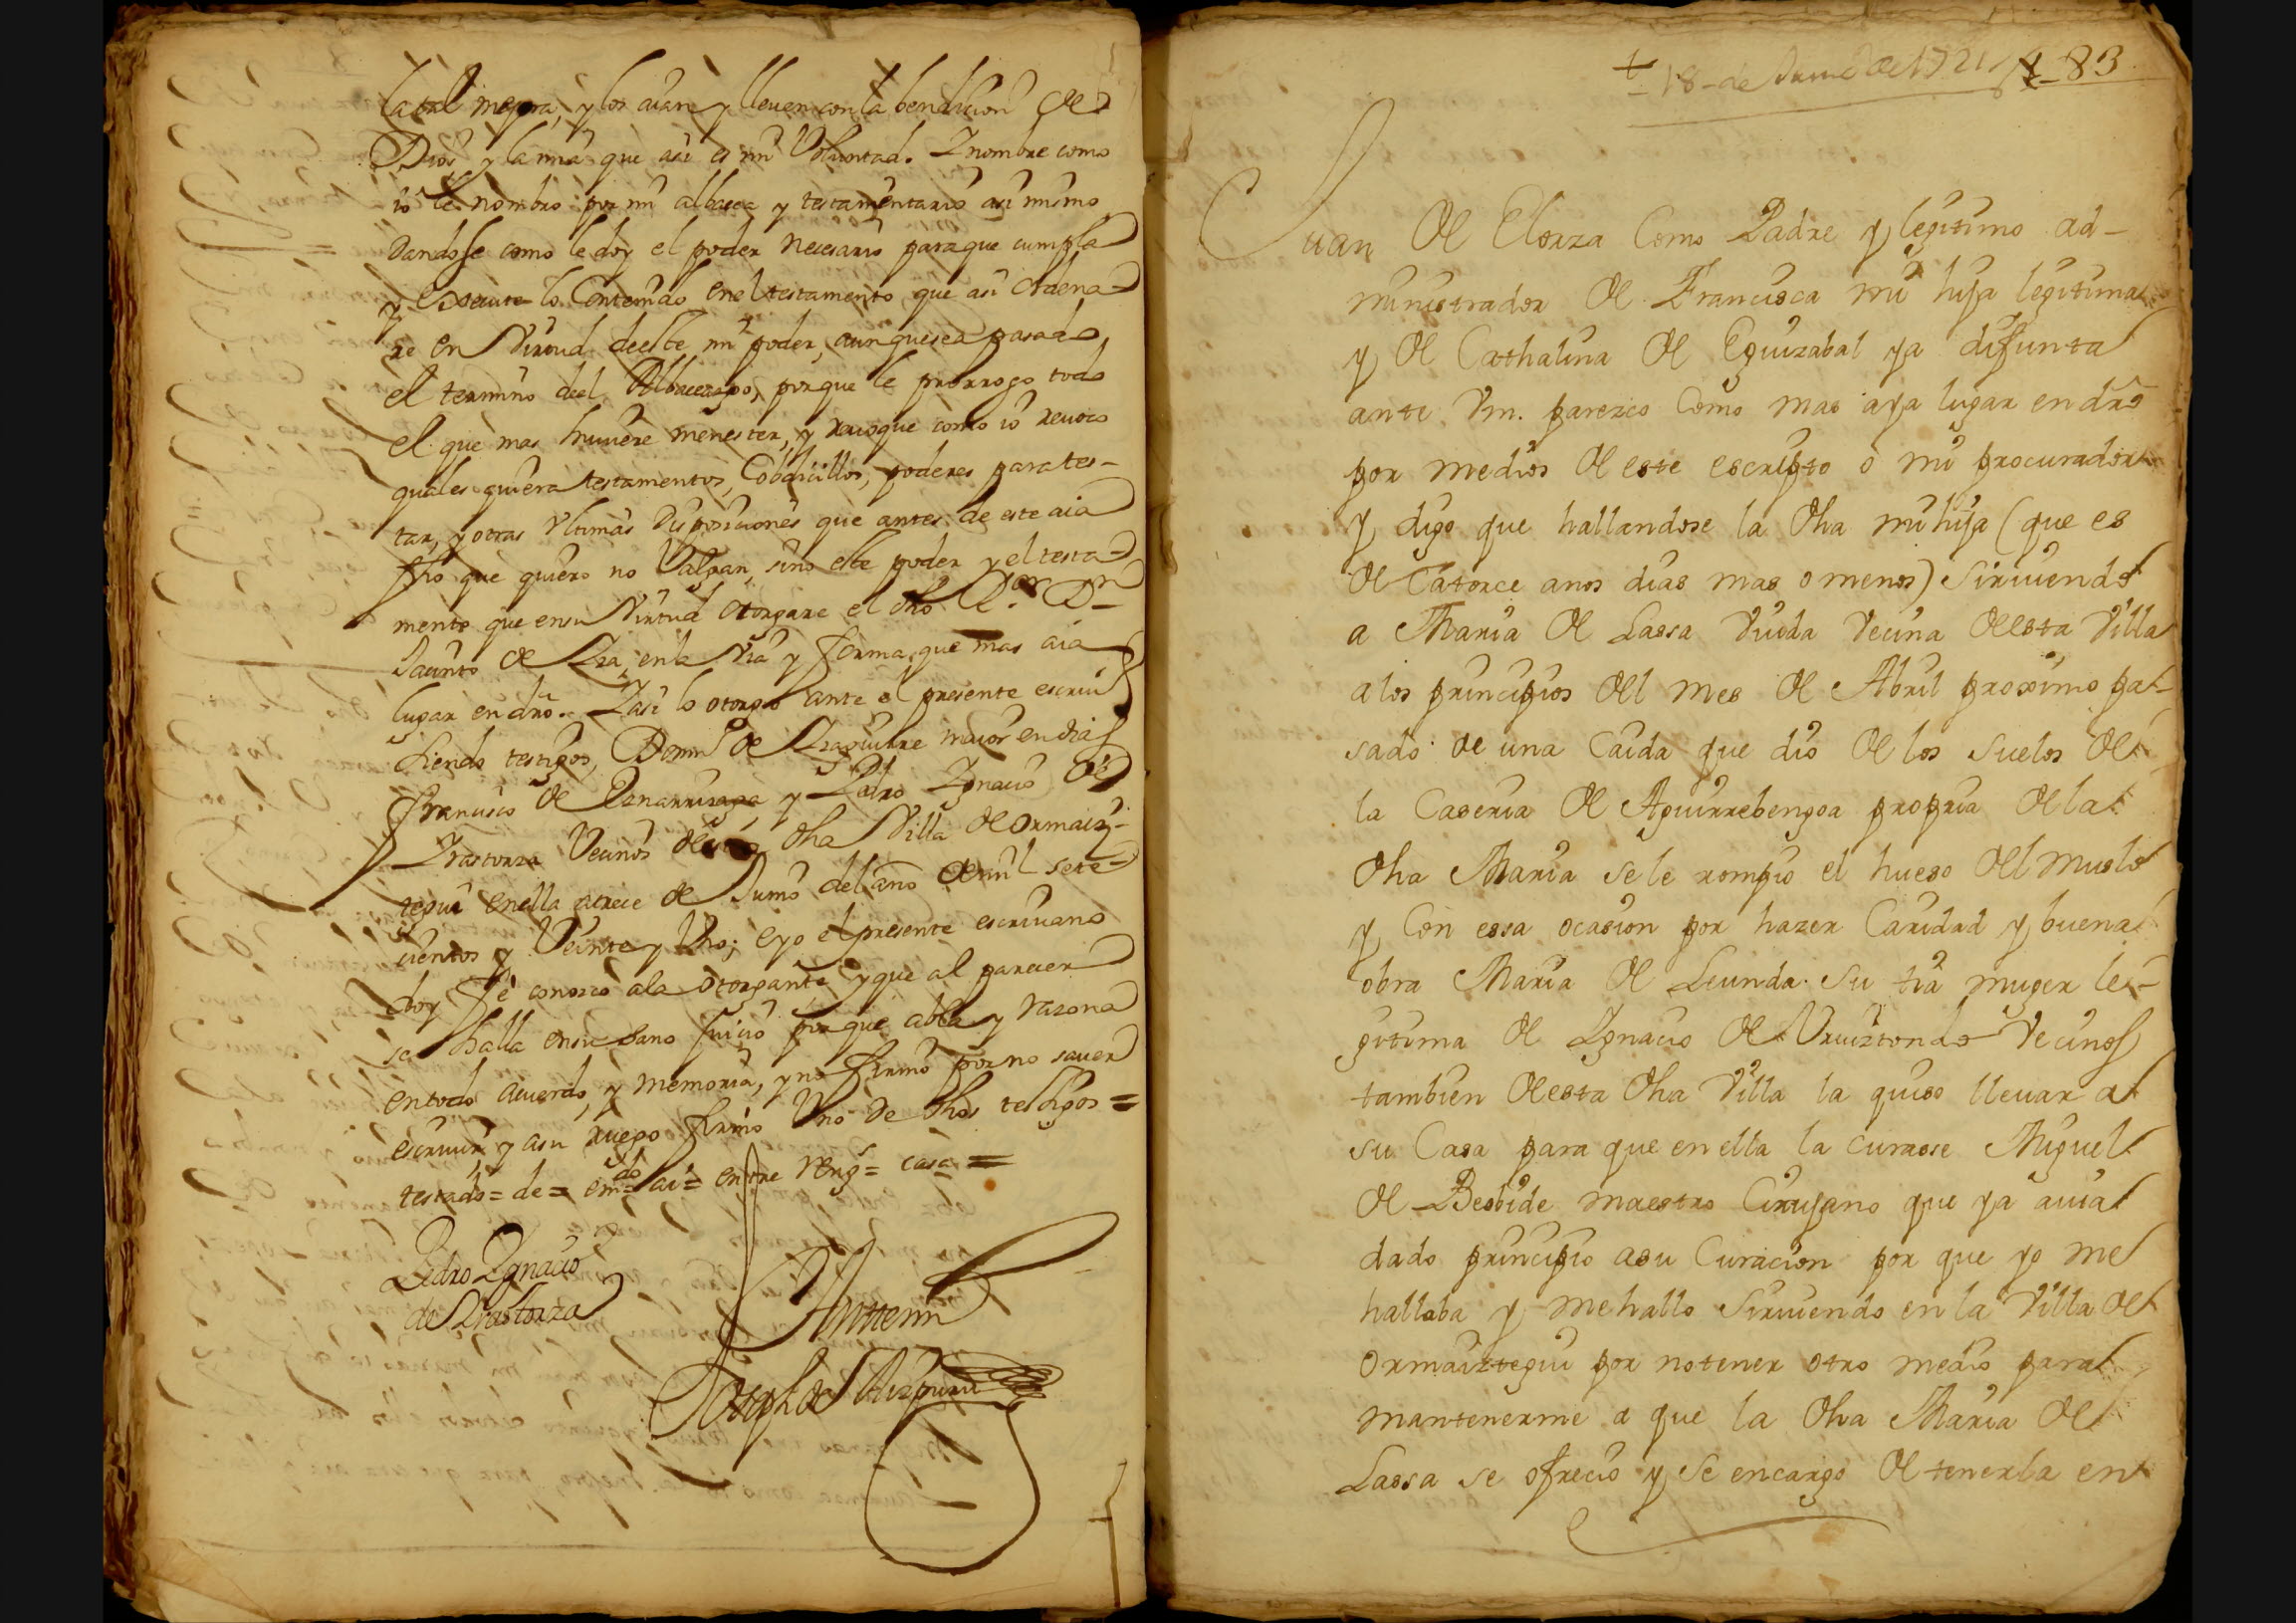 la tal mejora, y los aian y lleven con la bendicion de
Dios y la mia que asi es mi Voluntad. Y nombre como
io le nombro por mi albacea y testamentario asi mismo
dandosse como le doy el poder necesario para que cumpla
y execute lo Contenido en el testamento que asi Ordena-
re en Virtud de este mi poder, aunque sea pasado
el termino del Albaceasgo, porque le prorrogo todo
el que mas huviere menester, y revoque como io revoco
quales quiera testamentos, Cobdicillos, poderes para tes-
tar, y otras Vltimas Disposiciones que antes de este aia
fho que quiero no Valgan, sino este poder y el testa-
mento que en su Virtud otorgare el dho Dor. Dn
Jacinto de Zra, en la Via y forma que mas aia
lugar en dro. Y asi lo otorgo ante el presente escriu
siendo testigos, Domin de Yraguirre maior en dias
Francisco de y Pedro Ygnacio de
Yrastorza Vecinos de dha Villa de Ormaiz-
tegui en ella a trece de Junio del año de mil sete-
cientos y Veinte y Vno; e yo el presente escrivano
doy fe conozco a la otorgante y que al parecer
se halla en su sano juicio porque abla y razona
en todo acuerdo, y memoria, y no firmo por no saver
escriuir, y a su ruego firmo Vno de dhos testigos =
testado = de = emdo = ai = entre reng = casa =
Pedro Ygnacio
de Yrastorza
Antemi
Joseph de Aizpuru
+ 18 - de Junio de 1721 83
Juan de Elorza Como Padre y legitimo ad-
ministrador de Francisca mi hija legitima
y de Cathalina de Eguizabal ya difunta
ante Vm. parezco Como mas aya lugar en dro
por medios de este escripto o mi procurador
y digo que hallandose la dha mi hija (que es
de Catorce anos dias mas o menos) Sirviendo
a Maria de Lassa Viuda Vecina de esta Villa
a los principios del mes de Abril proximo pa-
sado de una Caida que dio de los Suelos de
la Caseria de Aguirrebengoa propria de la
dha Maria se le rompio el hueso del Muslo
y Con essa ocasion por hazer Caridad y buena
obra Maria de Leunda su tia muger le-
gitima de Ygnacio de Vruiztondo Vecinos
tambien de esta dha Villa la quiso llevar a
su Casa para que en ella la curasse Miguel
de Beobide maestro Cirujano que ya auia
dado principio a su Curacion por que yo me
hallaba y me hallo Sirviendo en la Villa de
Ormaiztegui por no tener otro medio para
mantenerme a que la dha Maria de
Lassa se ofrecio y se encargo de tenerla en